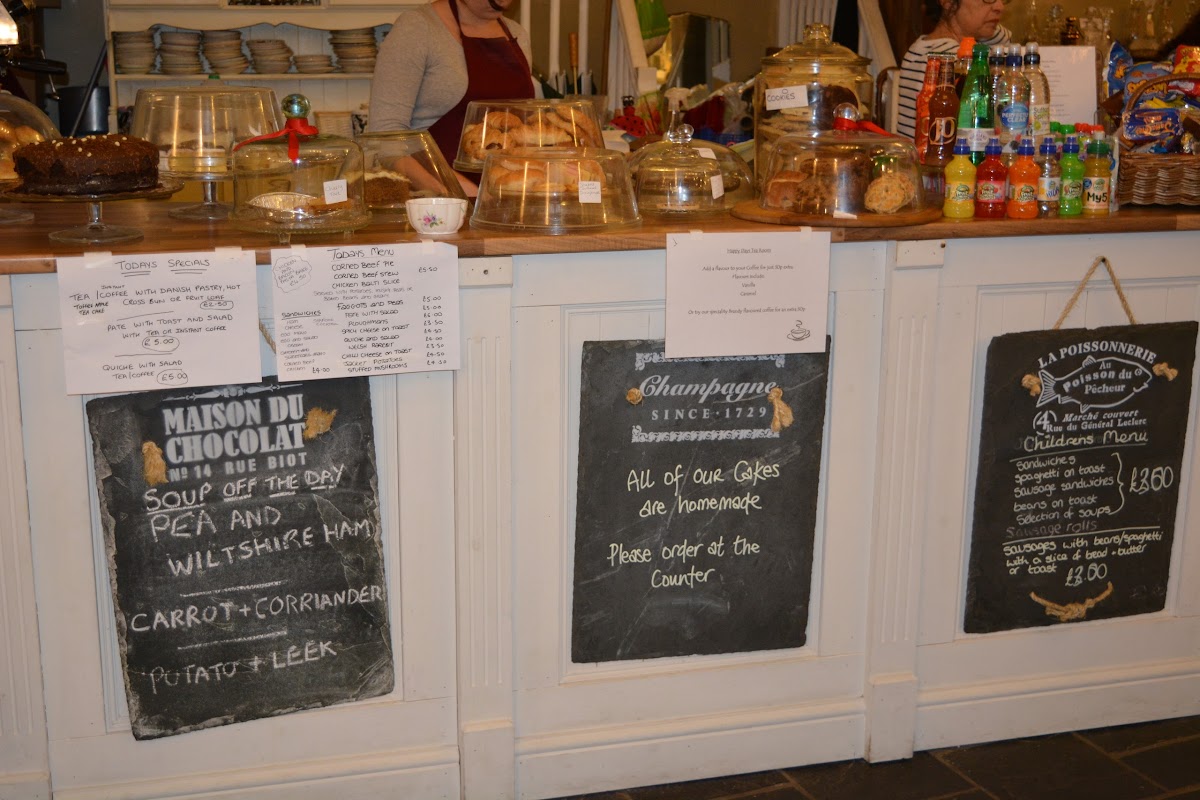 COOKIES
TODAYS SPECIALS
INSTANT
TEA/COFFEE WITH DANISH PASTRY, HOT
CROSS BUN OR FRUIT LOAF
TOFFEE APPLE
TEA CAKE
£2.50
PATE WITH TOAST AND SALAD
WITH TEA OR INSTANT COFFEE
£5.00
QUICHE WITH SALAD
TEA/COFFEE £5.00
TODAYS MENU
CORNED BEEF PIE
CORNED BEEF STEW £5.50
CHICKEN BALTI SLICE
FAGGOTS AND PEAS £5.00
PATE WITH SALAD
PLOUGHMANS
QUICHE AND SALAD
WELSH RABBIT
CHILLI CHEESE ON TOAST
JACKET POTATOES
STUFFED MUSHROOMS £4.50
SANDWICHES
HAM
CHEESE
EGG MAYO
CHICKEN £4.00
Add a flavour to your Coffee for just 50p extra
Flavours include:
Vanilla
Caramel
MAISON DU
CHOCOLAT
Nº 14 RUE BIOT
SOUP OFF THE DAY
PEA AND
WILTSHIRE HAM
CARROT + CORRIANDER
POTATO + LEEK
Champagne
SINCE · 1729
All of our Cakes
are homemade
Please order at the
Counter
LA POISSONNERIE
Au
Poisson du
Pêcheur
4 Marché couvert
Rue du Général Leclerc
Childrens Menu
Sandwiches
spaghetti on toast
sausage sandwiches
beans on toast
Selection of soups
£3.60
Sausage rolls
Sausages with beans/spaghetti
with a slice of bread + butter
or toast £3.60